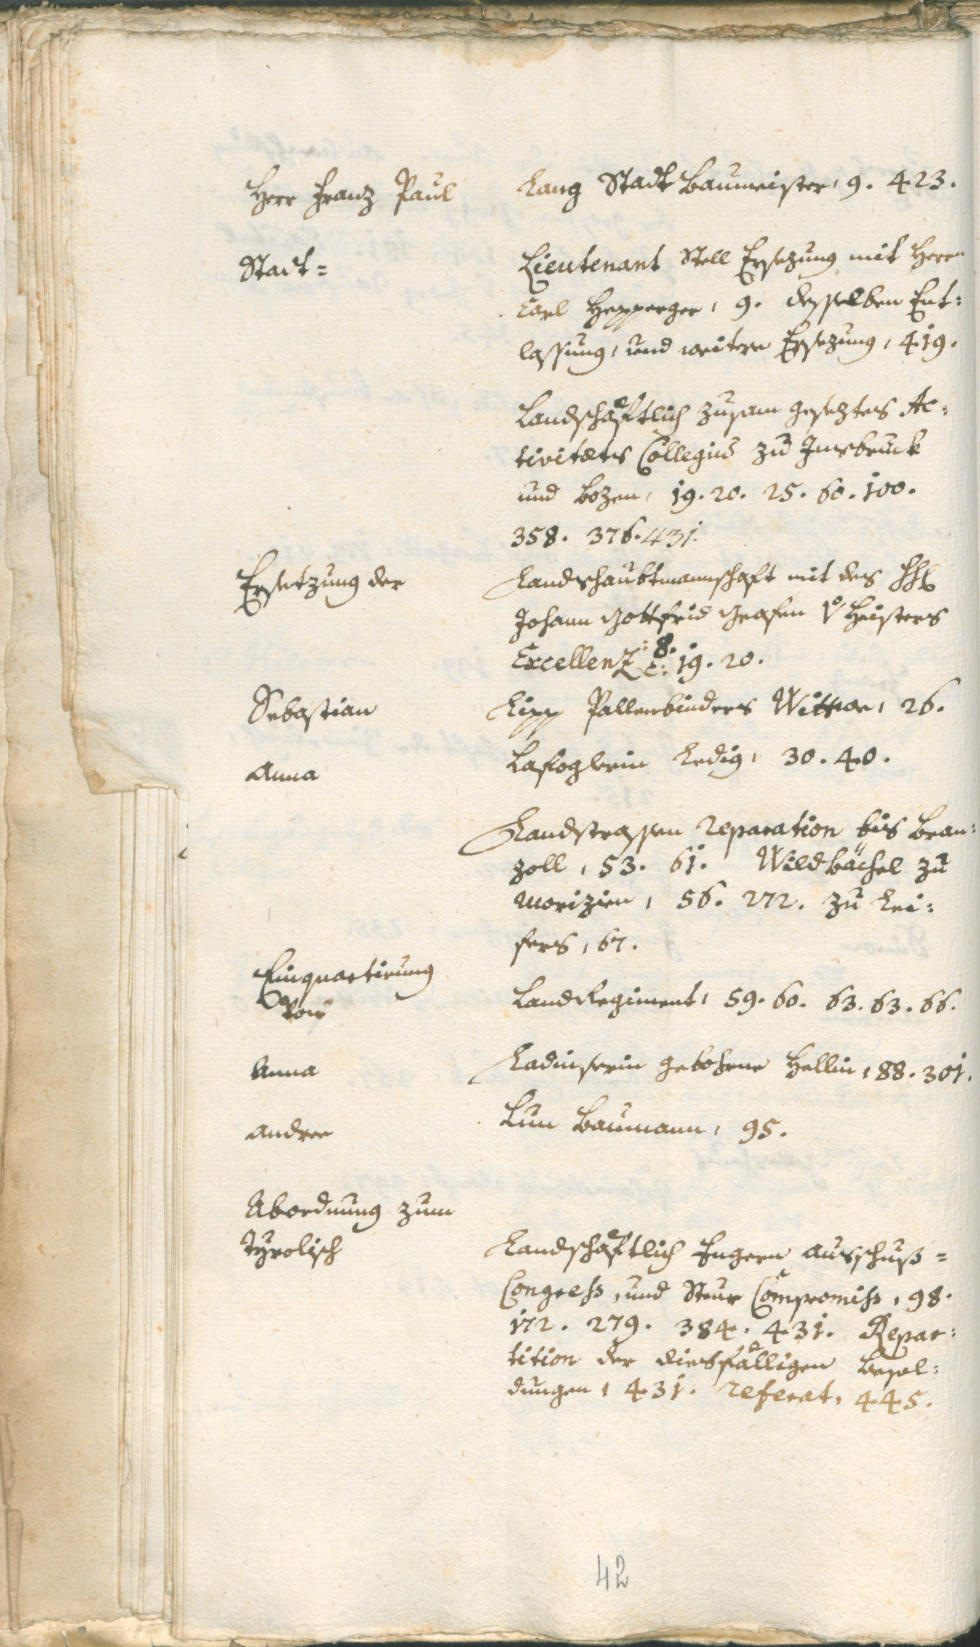 Herr Franz Paul Lang Stadt Baumeister, 9. 423.
Stadt= Lieutenant Stell Ersezung mit Herrn
Carl Hepperger, 9. desselben Ent:
lassung, und weitere Ersezung, 419.
Landschäftlich zusam gesetztes Ac:
tivitæts Collegiũ zu Innsbruck
und Bozen, 19. 20. 25. 60. 100.
358. 376. 431.
Ersetzung der Landshaubtmannschaft mit des
Johann Gottfrid Grafen v. Heisters
Excellenz 8. 19. 20.
Sebastian Lipp Pallenbinders Wittwe, 26.
Anna Lafoglerin Ledig, 30. 40.
Landstrassen Reparation bis Bran:
zoll, 53. 61. Wildbächel zu
Morizien, 56. 272. zu Lei:
fers, 67.
Einquartirung
Von LandRegiment, 59. 60. 63. 63. 66.
Anna Ladinserin gebohrne Hellin, 88. 301.
Andree Lun Baumann, 95.
Abordnung zum
Tyrolisch Landschäftlich Engern Ausschuß=
Congress, und Steur Compromiss, 98.
172. 279. 384. 431. Repar:
tition der diesfälligen Besol:
dungen, 431. Referat, 445.
42